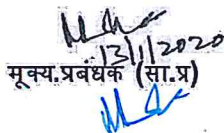 13/1/2020
मूख्य.प्रबंधक (सा.प्र)